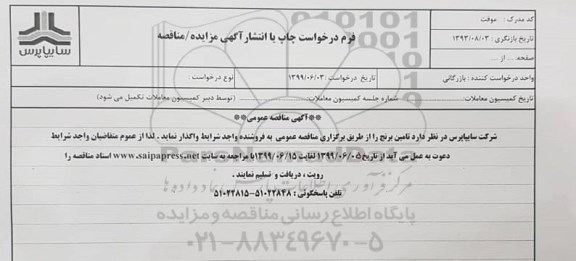 کد مدرک : موقت
تاریخ بازنگری : ۱۳۹۳/۰۸/۰۳
صفحه: ... از ...
فرم درخواست چاپ یا انتشار آگهی مزایده/مناقصه
سایپاپرس
واحد درخواست کننده : بازرگانی
تاریخ درخواست : ۱۳۹۹/۰۶/۰۳
نوع درخواست :
تاریخ کمیسیون معاملات: شماره جلسه کمیسیون معاملات: (توسط دبیر کمیسیون معاملات تکمیل می شود)
**آگهی مناقصه عمومی**
شرکت سایپاپرس در نظر دارد تامین برنج را از طریق برگزاری مناقصه عمومی به فروشنده واجد شرایط واگذار نماید . لذا از عموم متقاضیان واجد شرایط
دعوت به عمل می آید از تاریخ ۱۳۹۹/۰۶/۰۵ لغایت ۱۳۹۹/۰۶/۱۵ با مراجعه به سایت www.saipapress.net اسناد مناقصه را
رویت ، دریافت و تسلیم نمایند .
تلفن پاسخگوئی : ۵۱۰۲۲۸۴۸-۵۱۰۲۲۸۱۵
ParsNamadData
پایگاه اطلاع رسانی مناقصه و مزایده
۰۲۱-۸۸۳۴۹۶۷۰-۵